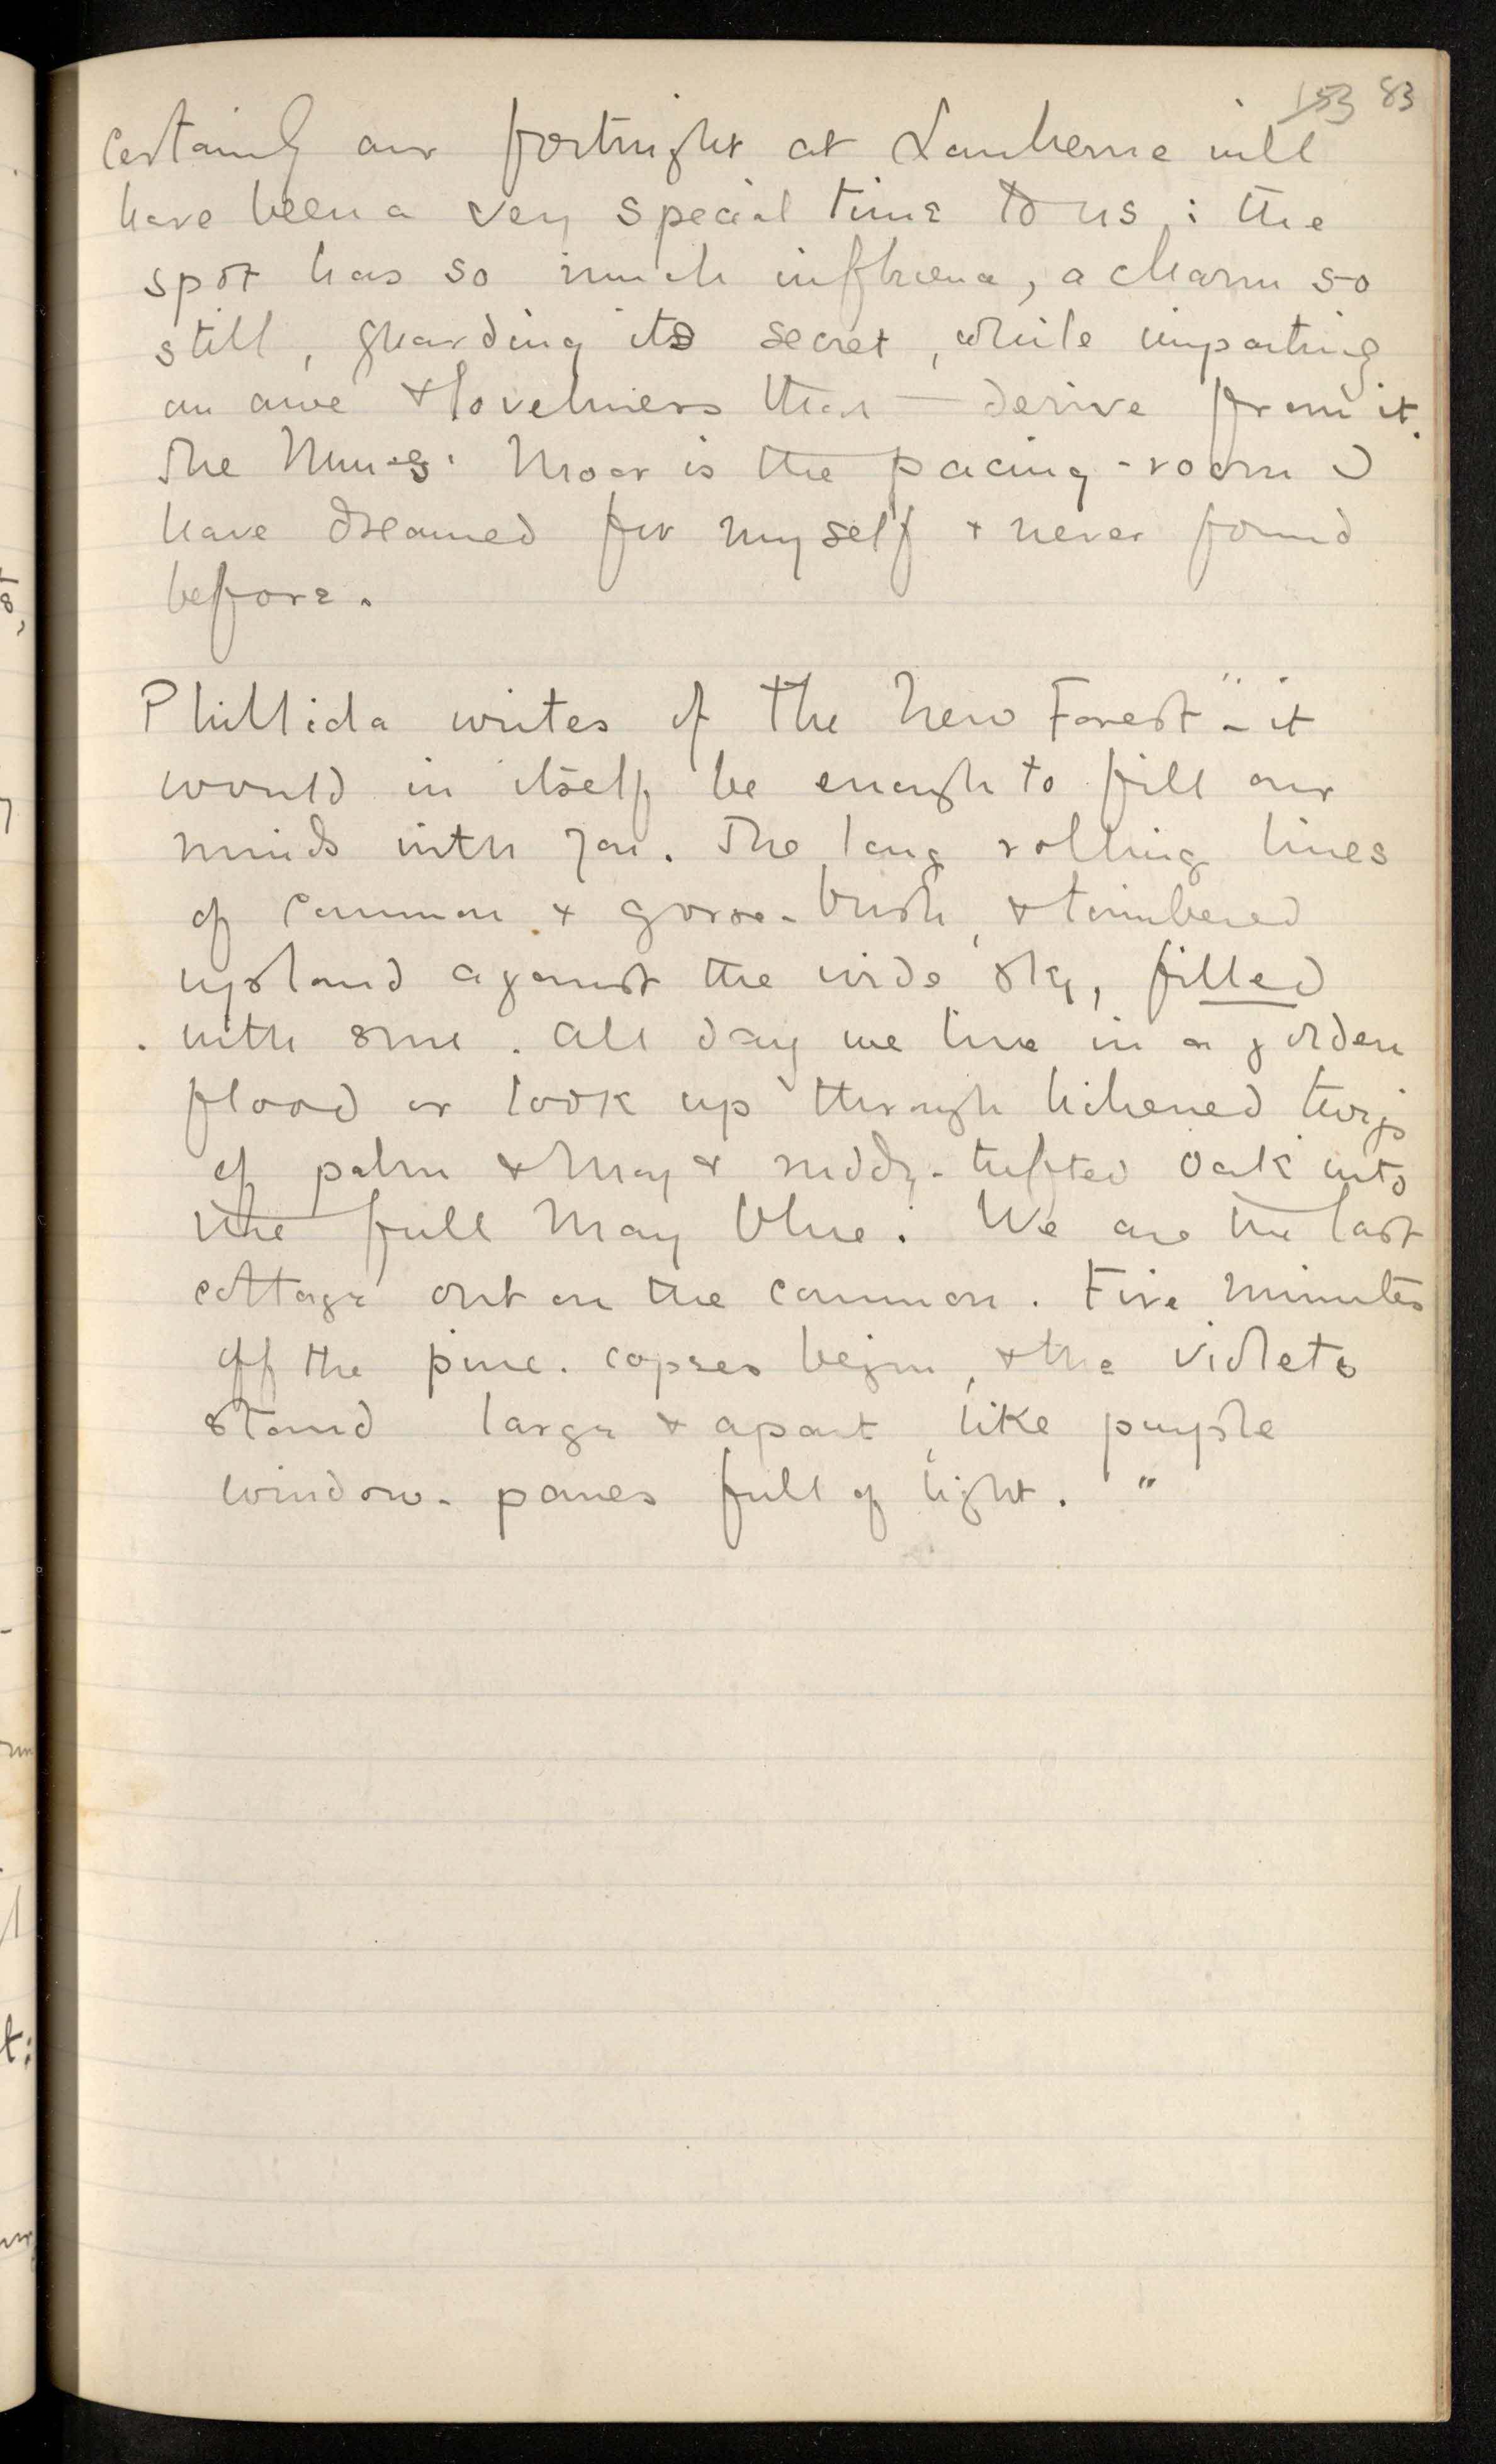 153 83
Certainly our fortnight at Lanherne will
have been a very special time to us : the
spot has so much influence, a charm so
still, guarding its secret, while imparting
an awe & loveliness that derive from it.
The Nuns' Moor is the pacing-room I
have dreamed for myself & never found
before.
Phillida writes of the New Forest "- it
would in itself be enough to fill our
minds with you. The long rolling lines
of common & gorse-bush, & timbered
upland against the wide sky, filled
with sun. All day we live in a golden
flood or look up through lichened twigs
of palm & May & ruddy-tufted oak into
the full May blue. We are the last
cottage out on the common. Five minutes
off the pine-copses begin, & the violets
stand large & apart, like purple
window-panes full of light. "